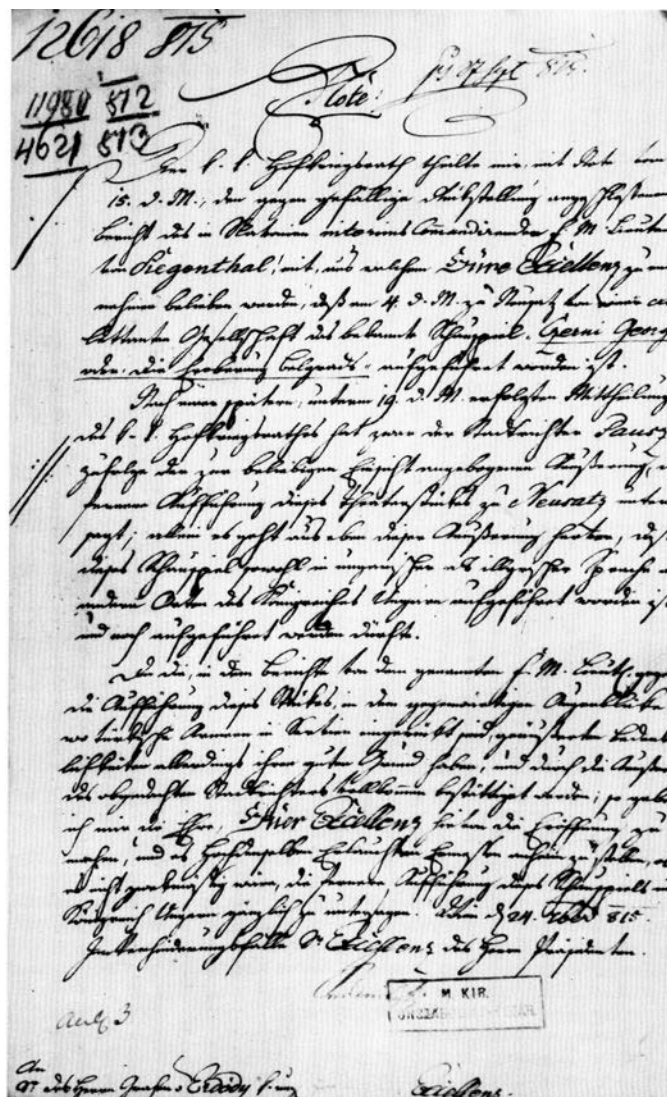 12618 815
Note!
11980 812
4621 813
Der k. k. Hofkriegsrath theilte mir mit Note vom
15. d. M., den gegen gefällige Rückstellung angeschlossenen
Bericht des in Slavonien interims Commandirenden F. M. Lieute
von Siegenthal, mit, aus welchem Eure Excellenz zu ent
nehmen belieben werden, daß am 4. d. M. zu Neusatz von einer
Gesellschaft das bekannte Schauspiel: Czerni Georg
oder: die Eroberung Belgrads aufgeführt worden ist.
Nach einer spätern, unterm 19. d. M. erfolgten Mittheilung
des k. k. Hofkriegsrathes hat zwar der Stadtrichter
zufolge der zur beliebigen Einsicht Äußerung,
fernere Aufführung dieses Theaterstückes zu Neusatz unter
sagt; allein es geht aus eben dieser Äußerung hervor, daß
dieses Schauspiel sowohl in ungarischer als illyrischer Sprache
andern Orten des Königreiches Ungarn aufgeführt worden ist
und noch aufgeführt werden dürfte.
Da die, in dem Berichte von dem genannten F. M. Lieut. gegen
die Aufführung dieses Stückes, in dem gegenwärtigen Augenblicke
wo türkische Armeen in Servien eingerückt sind, geäußerten Bedenk
lichkeiten allerdings ihren guten Grund haben, und durch die Äußerung
des obgedachten Stadtrichters vollkommen bestättiget werden; so gebe
ich mir die Ehre, Euer Excellenz hievon die Eröffnung zu
machen, und es Hochdenselben Erlauchten Ermessen anheim zu stellen,
es nicht zweckmäßig wäre, die fernere Aufführung dieses Schauspiels im
Königreich Ungarn gänzlich zu untersagen. Wien d. 24. 815.
In Verhinderungsfalle Sr Excellenz des Herrn Präsidenten.
M. KIR.
3
An
Sr des Herrn Grafen v Erdödy
Excellenz.